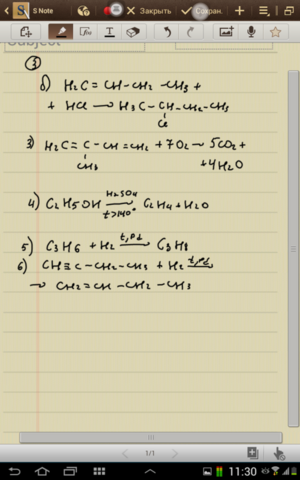 S Note
Закрыть
Сохран.
Subject
③
б) H₂C = CH-CH₂-CH₃ +
+ HCl → H₃C-CH-CH₂-CH₃
Cl
3) H₂C = C - CH = CH₂ + 7O₂ → 5CO₂ +
CH₃
+4H₂O
4) C₂H₅OH H₂SO₄ t>140° C₂H₄ + H₂O
5) C₃H₆ + H₂ t, Pt → C₃H₈
6) CH≡C-CH₂-CH₃ + H₂ t, Pt →
→ CH₂=CH-CH₂-CH₃
1/1
11:30